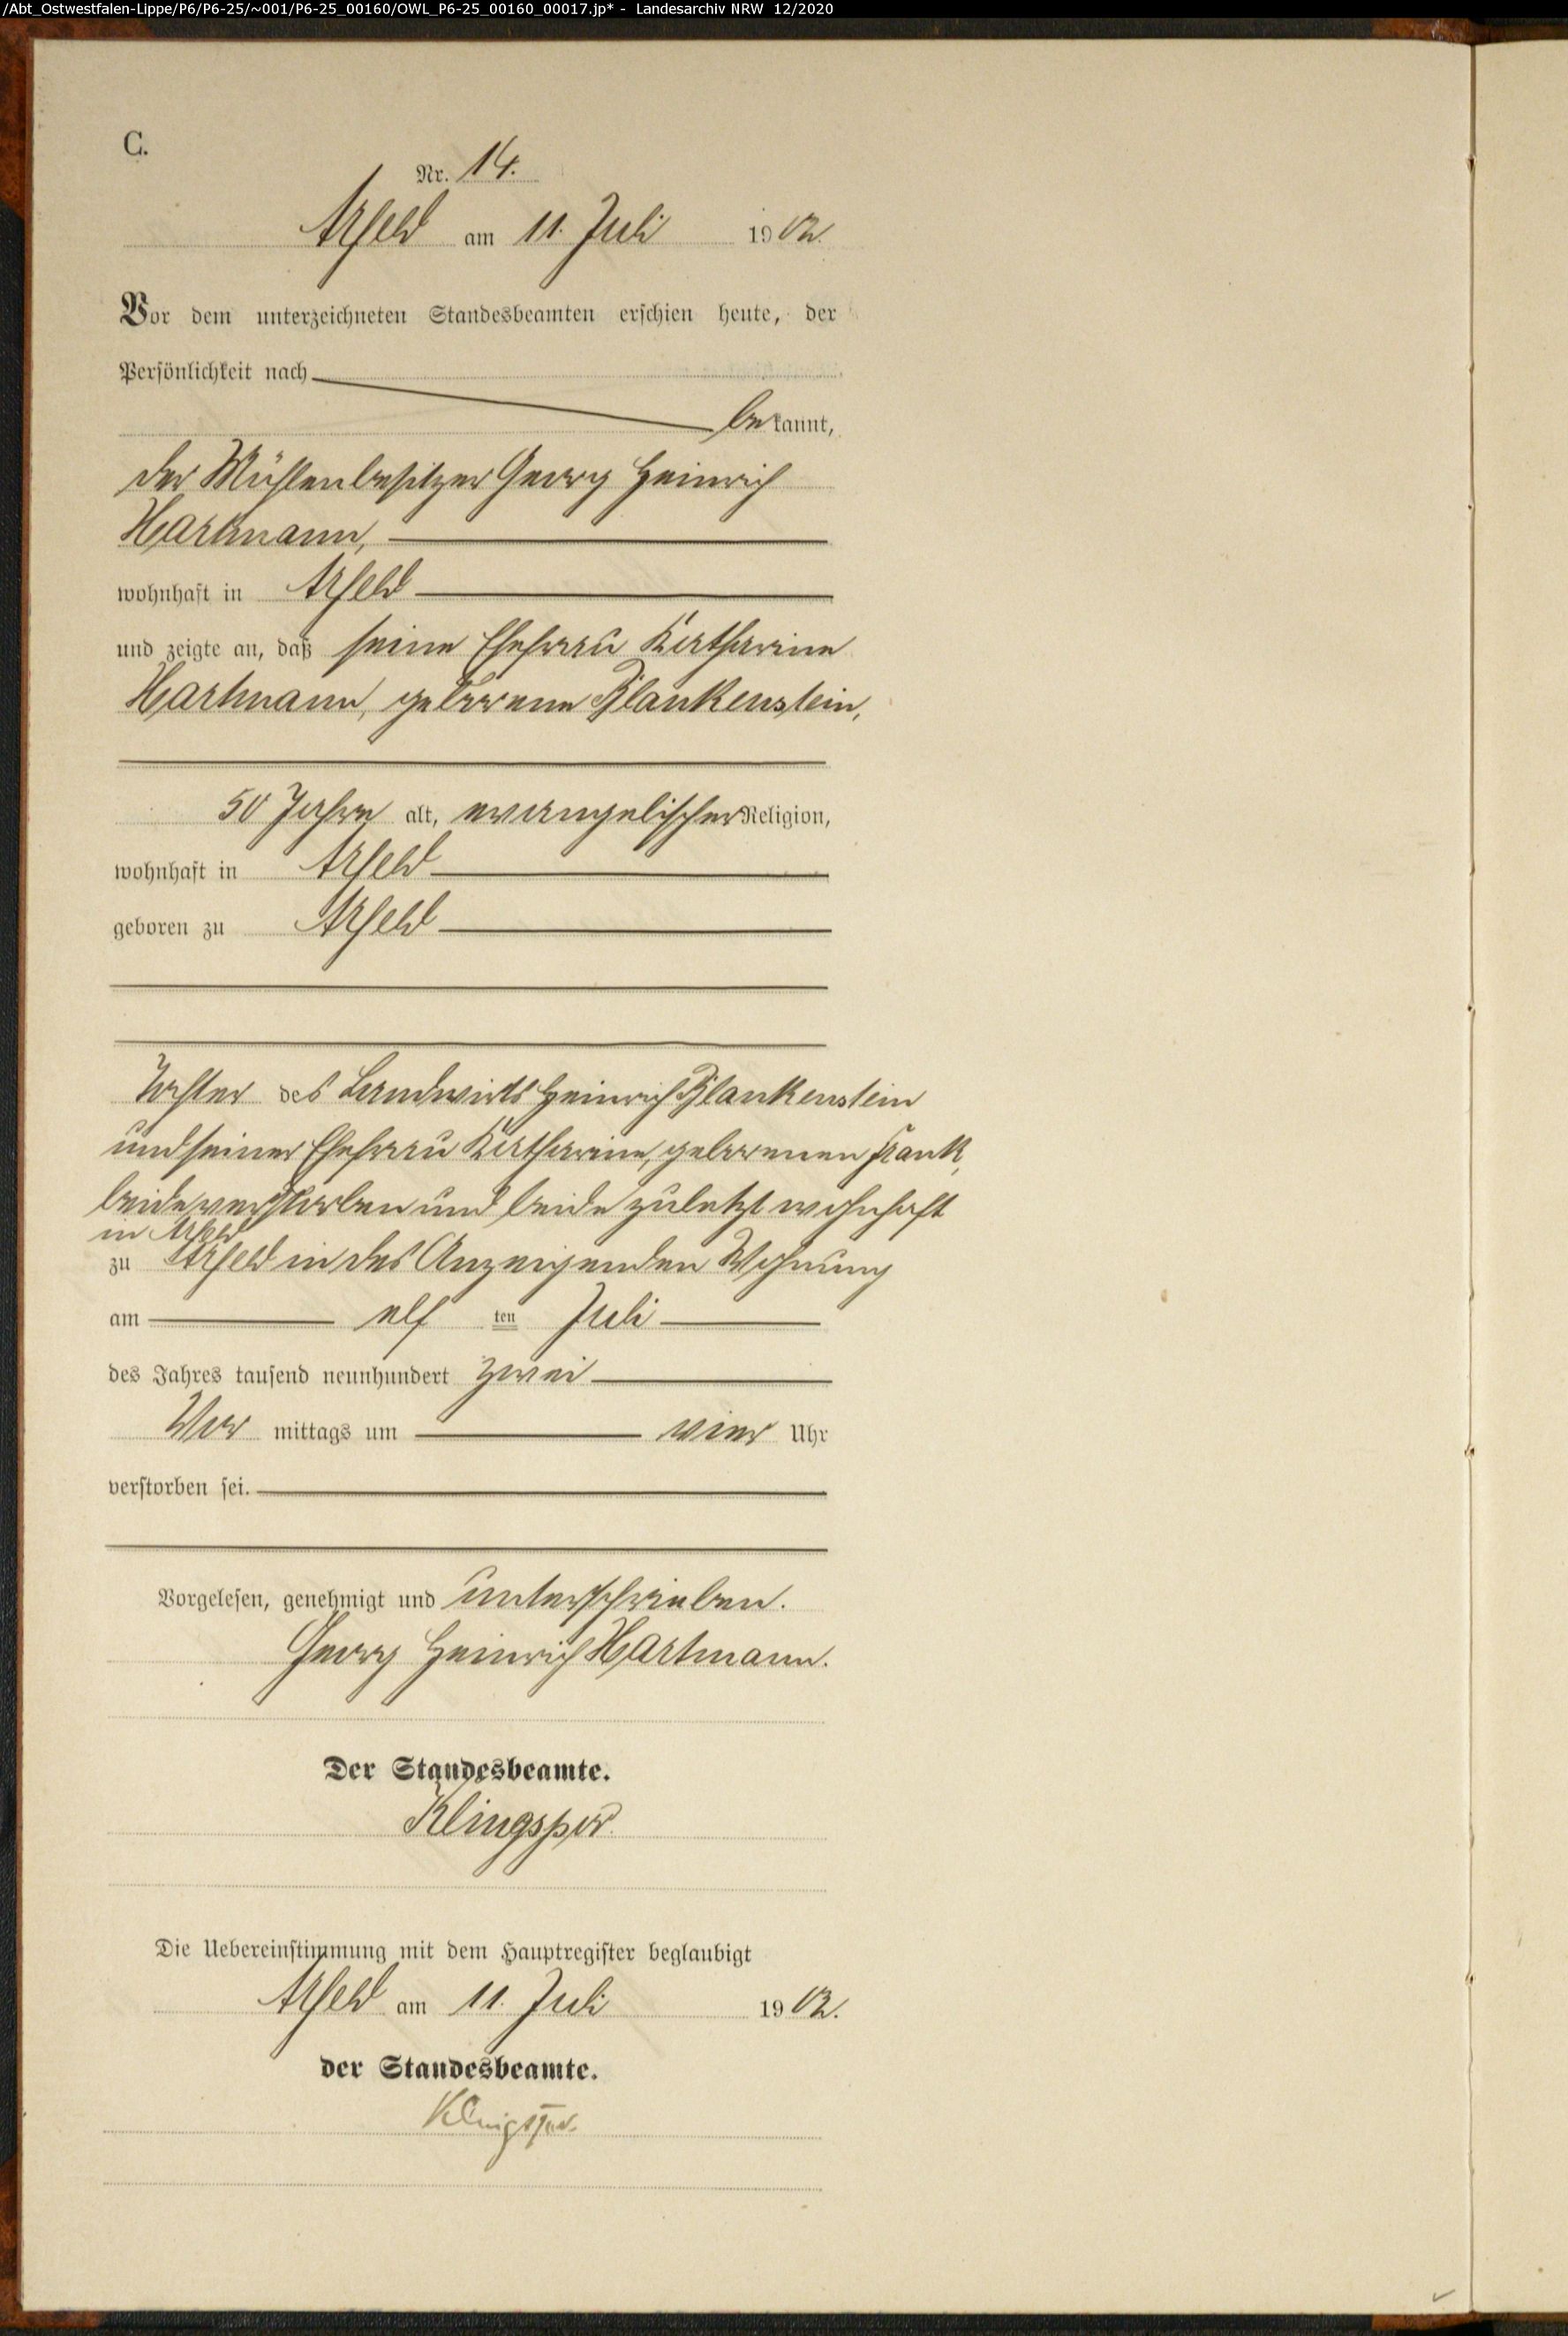 /Abt_Ostwestfalen-Lippe/P6/P6-25/~001/P6-25_00160/OWL_P6-25_00160_00017.jp* - Landesarchiv NRW 12/2020
C.
Nr. 14.
Arfeld am 11. Juli 1902.
Vor dem unterzeichneten Standesbeamten erschien heute, der
Persönlichkeit nach
bekannt,
der Mühlenbesitzer Georg Heinrich
Hartmann,
wohnhaft in Arfeld
und zeigte an, daß seine Ehefrau Katharine
Hartmann, geborene Blankenstein,
50 Jahre alt, evangelischer Religion,
wohnhaft in Arfeld
geboren zu Arfeld
Tochter des Landwirts Heinrich Blankenstein
und seiner Ehefrau Katharine, geborenen Frank,
beide verstorben und beide zuletzt wohnhaft
in Arfeld
zu Arfeld in des Anzeigenden Wohnung
am elf ten Juli
des Jahres tausend neunhundert zwei
Vor mittags um vier Uhr
verstorben sei.
Vorgelesen, genehmigt und unterschrieben.
Georg Heinrich Hartmann.
Der Standesbeamte.
Klingspor.
Die Uebereinstimmung mit dem Hauptregister beglaubigt
Arfeld am 11. Juli 1902.
der Standesbeamte.
Klingspor.